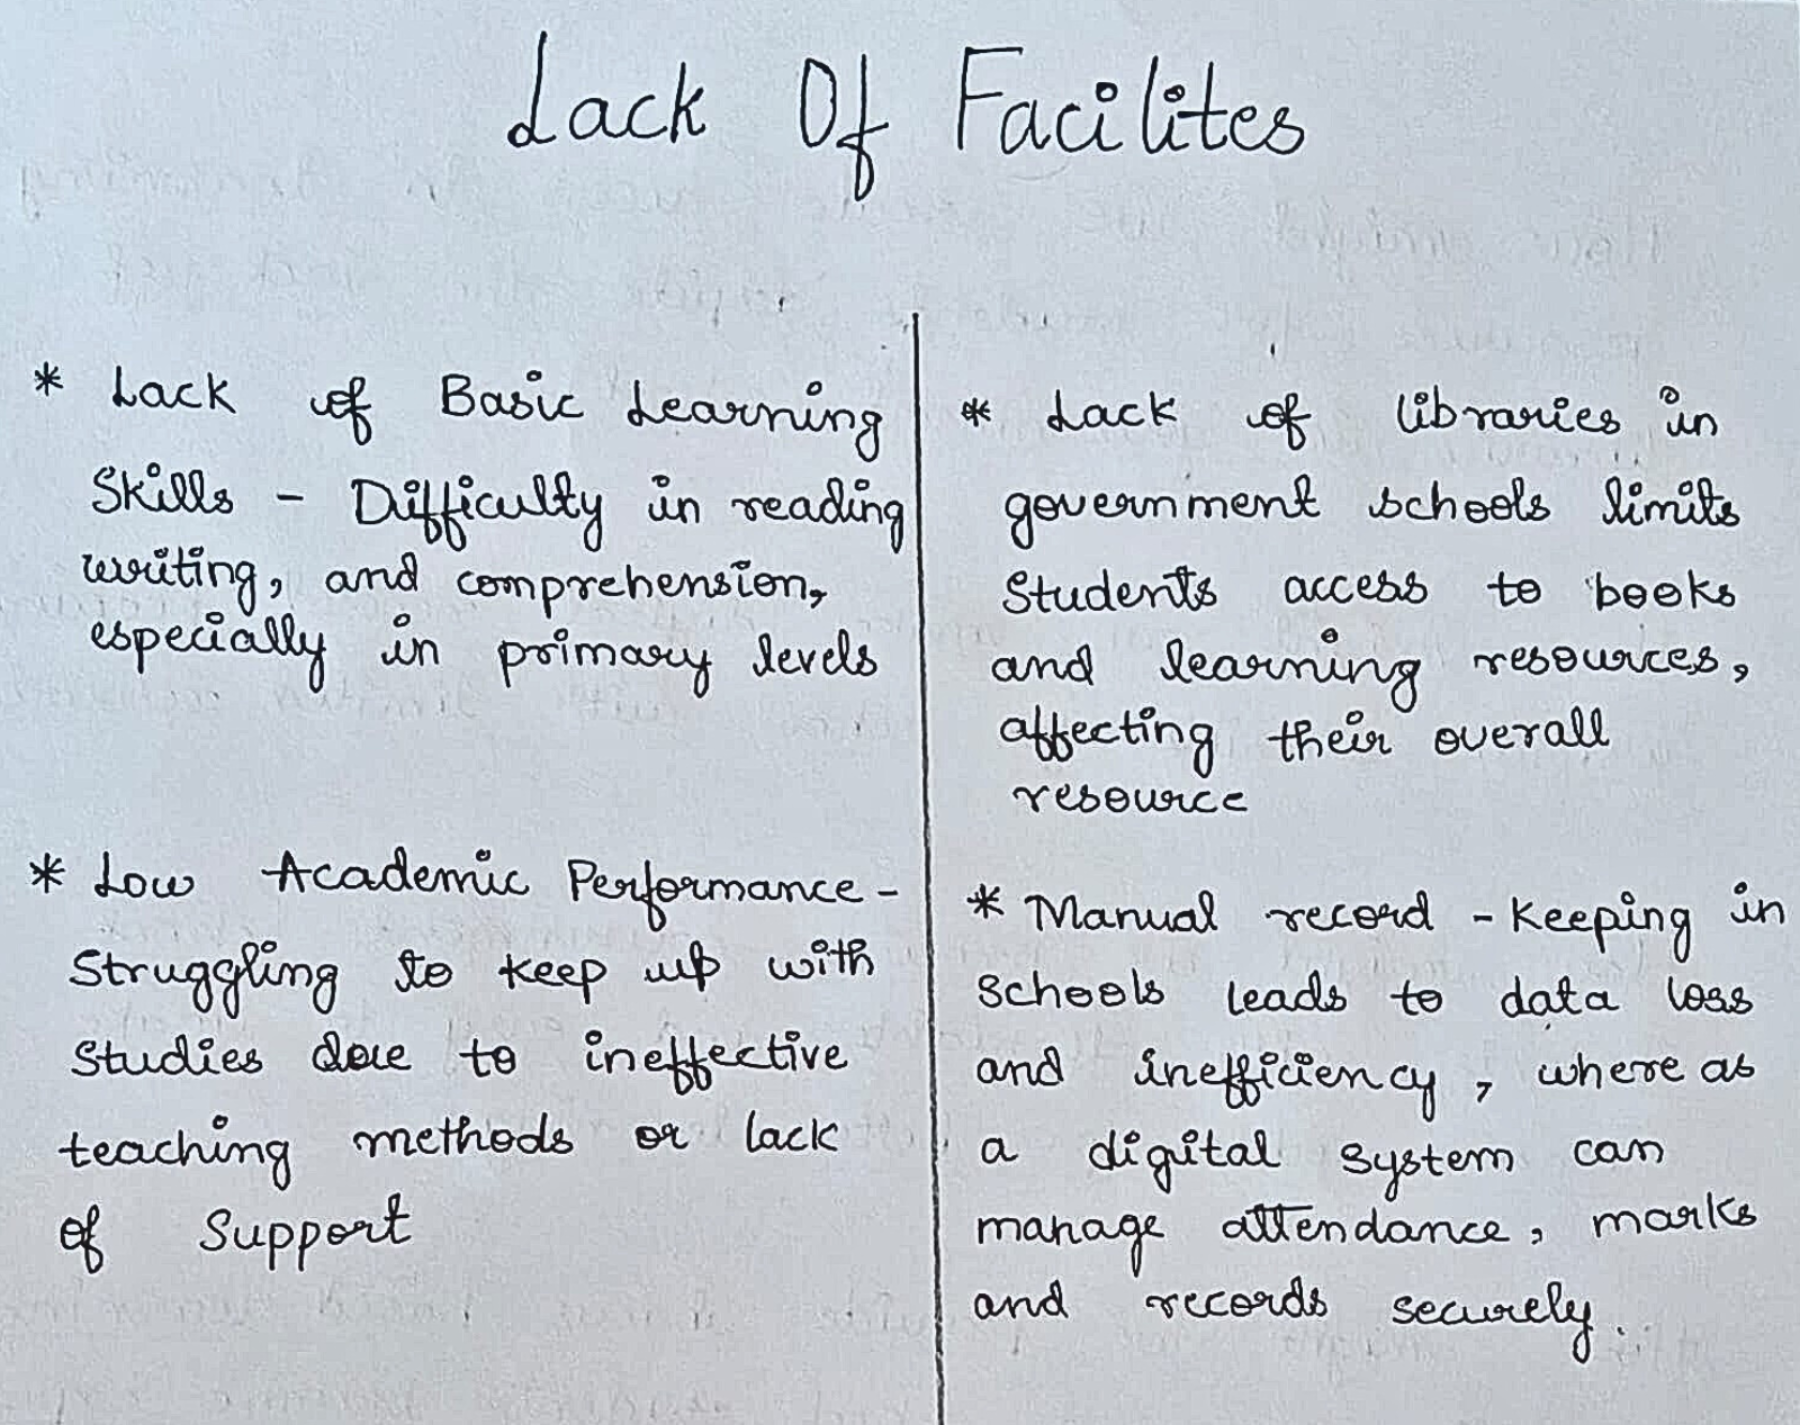 Lack Of Facilites
* Lack of Basic Learning
Skills - Difficulty in reading
writing, and comprehension,
especially in primary levels
* Low Academic Performance -
Struggling to keep up with
studies due to ineffective
teaching methods or lack
of Support
* Lack of libraries in
government schools limits
Students access to books
and learning resources,
affecting their overall
resource
* Manual record - keeping in
schools leads to data loss
and inefficiency, where as
a digital system can
manage attendance, marks
and records securely.